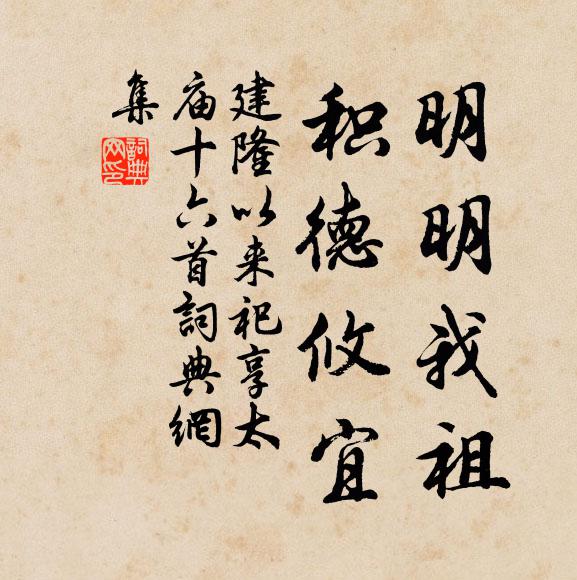 明明我祖
积德攸宜
建隆以来祀享太
庙十六首詞典網
集
詞典
网印